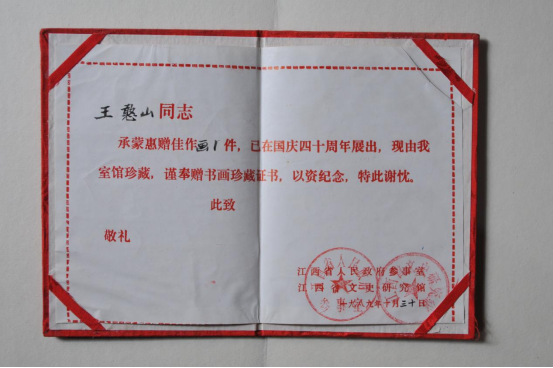 王憨山同志
承蒙惠赠佳作画1件，已在国庆四十周年展出，现由我
室馆珍藏，谨奉赠书画珍藏证书，以资纪念，特此谢忱。
此致
敬礼
江西省人民政府参事室
江西省文史研究馆
一九八九年十月三十日